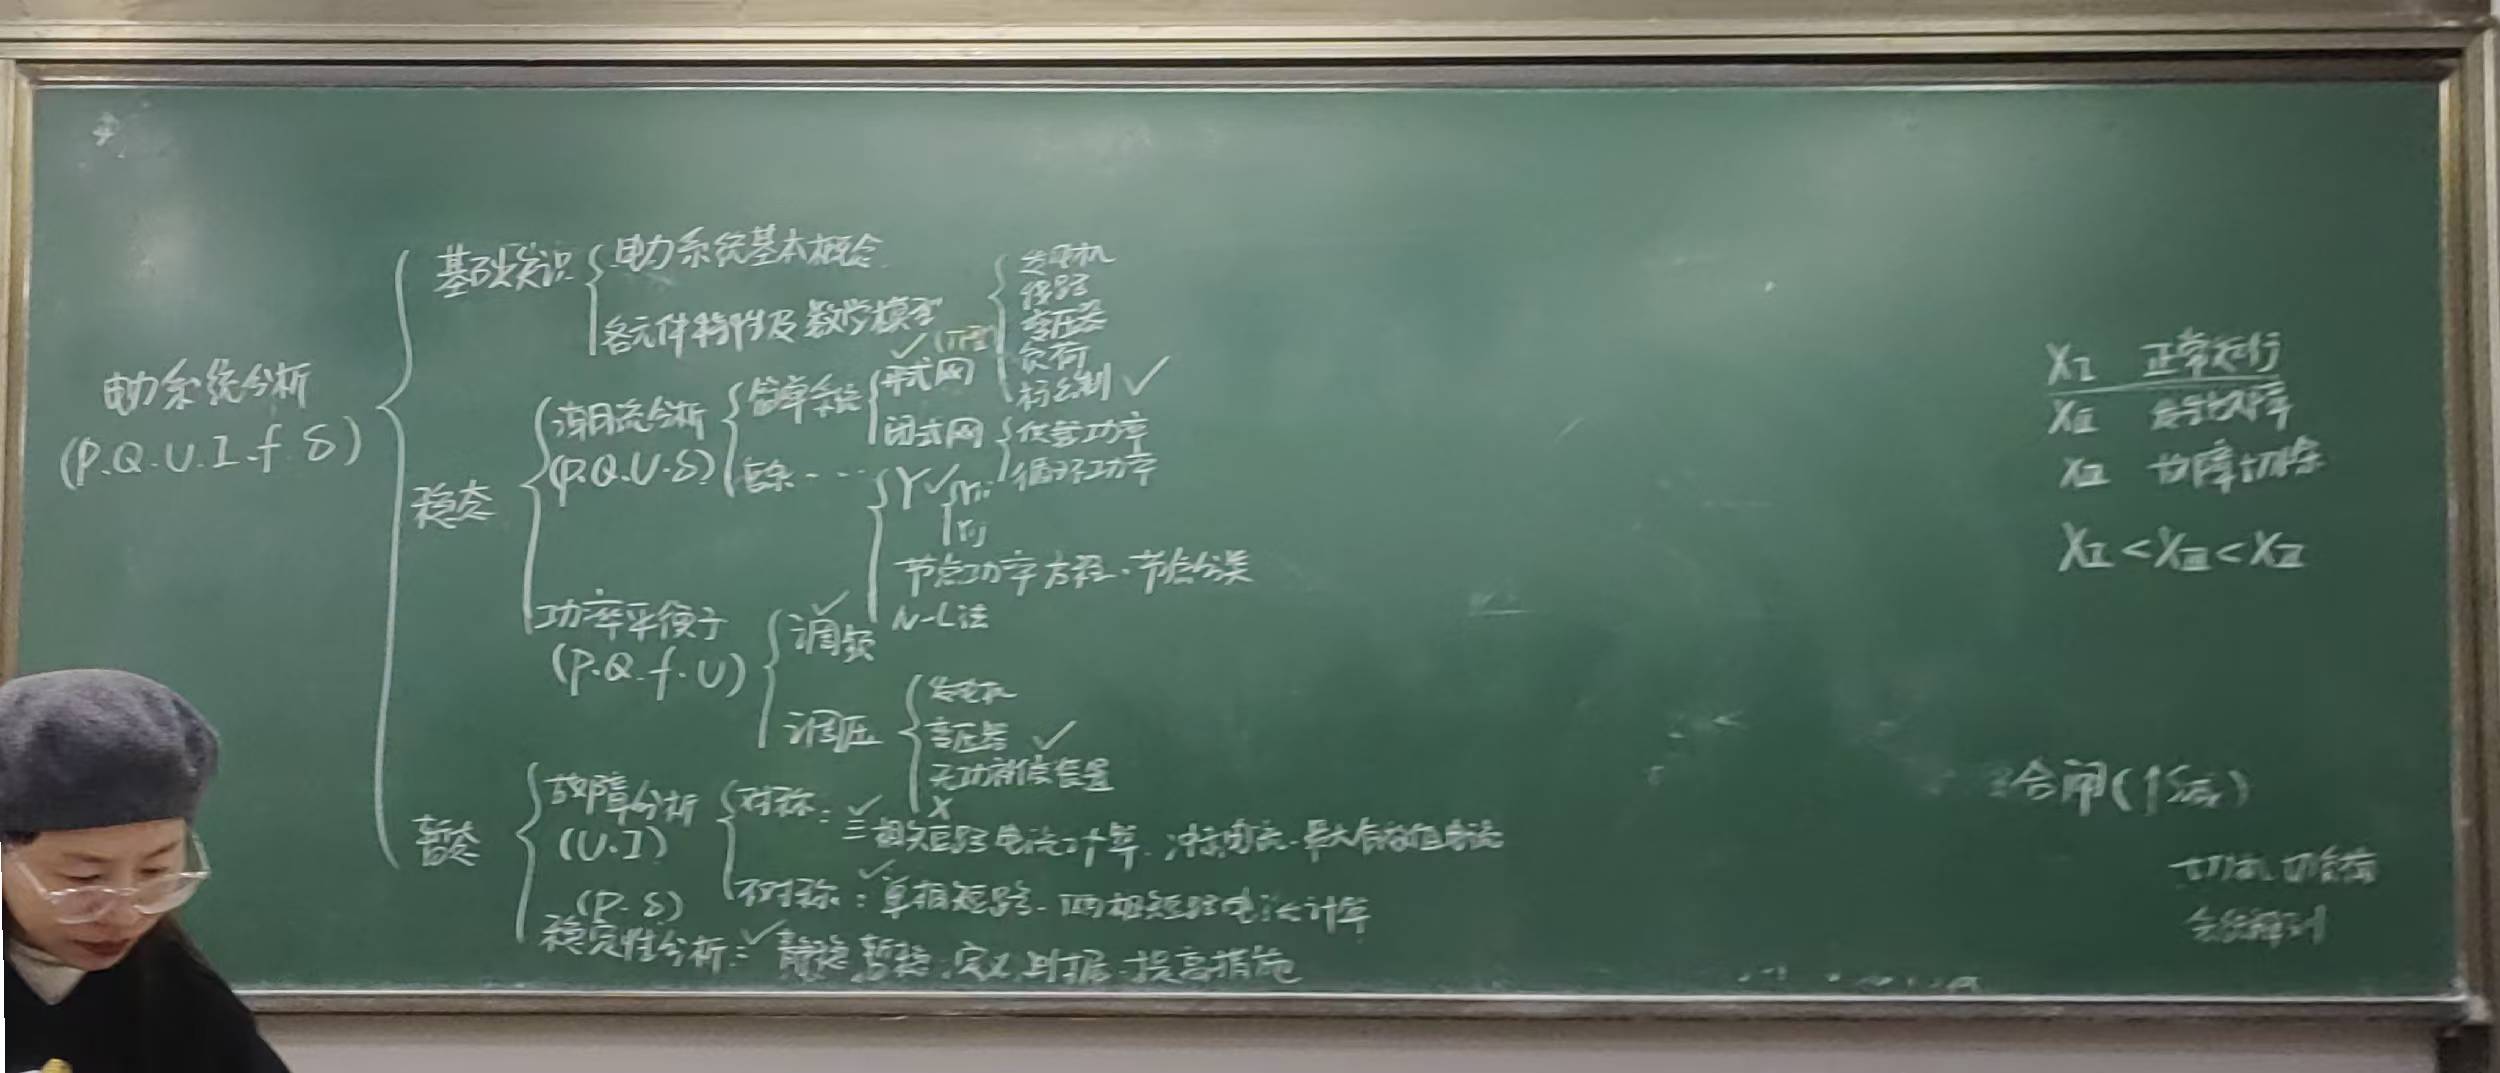 电力系统分析
(P.Q.U.I.f.δ)
基础知识
电力系统基本概念
各元件特性及数学模型
发电机
线路
变压器
负荷
标幺制 ✓
稳态
潮流分析
(P.Q.U.δ)
简单系统
✓
开式网
闭式网
供载功率
循环功率
Y ✓
Yii
Yij
节点功率方程.节点分类
N-L法
功率平衡
(P.Q.f.U)
✓
调频
调压
发电机
变压器 ✓
无功补偿装置
X
暂态
故障分析
(U.I)
对称: ✓
三相短路电流计算.冲击电流.最大有效值电流
不对称: ✓ 单相短路.两相短路电流计算
(P.δ)
稳定性分析: ✓ 静稳 暂稳:定义 判据.提高措施
XⅠ 正常运行
XⅡ 发生故障
XⅢ 故障切除
XⅠ<XⅢ<XⅡ
合闸
切机 切负荷
系统解列